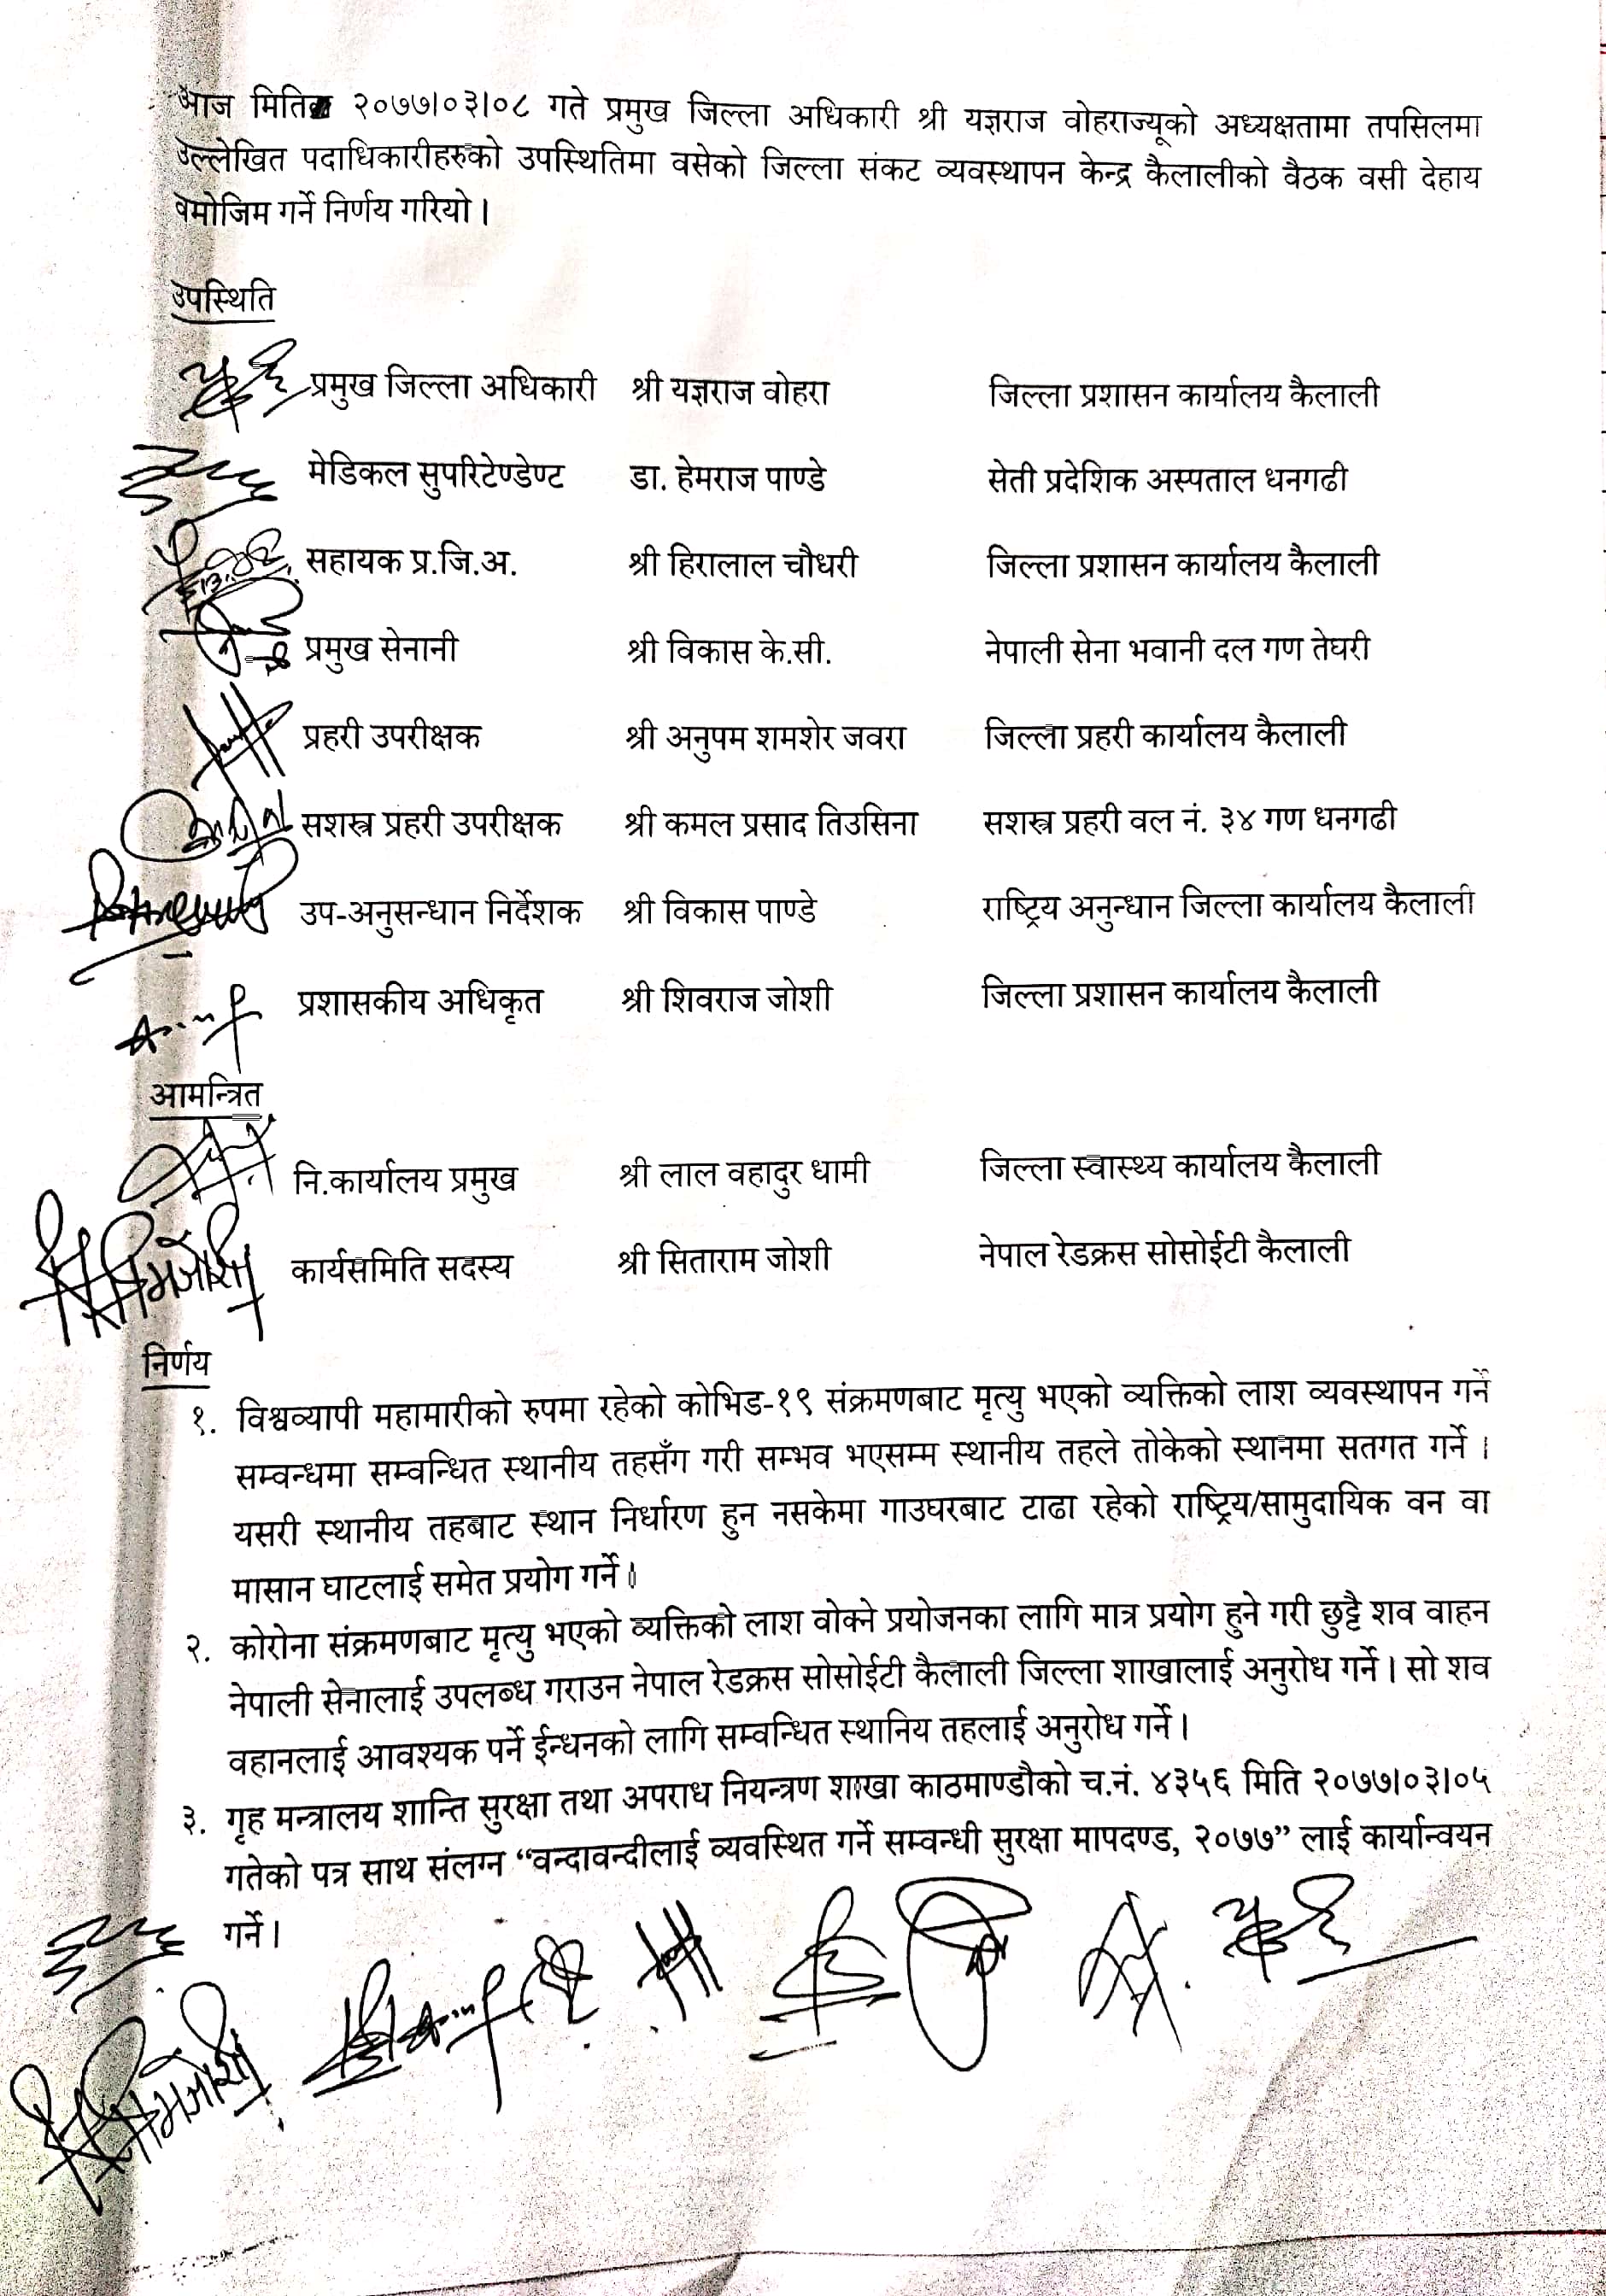 आज मिति २०७७।०३।०८ गते प्रमुख जिल्ला अधिकारी श्री यज्ञराज वोहराज्यूको अध्यक्षतामा तपसिलमा
उल्लेखित पदाधिकारीहरुको उपस्थितिमा वसेको जिल्ला संकट व्यवस्थापन केन्द्र कैलालीको वैठक वसी देहाय
वमोजिम गर्ने निर्णय गरियो।
उपस्थिति
प्रमुख जिल्ला अधिकारी श्री यज्ञराज वोहरा जिल्ला प्रशासन कार्यालय कैलाली
मेडिकल सुपरिटेण्डेण्ट डा. हेमराज पाण्डे सेती प्रदेशिक अस्पताल धनगढी
सहायक प्र.जि.अ. श्री हिरालाल चौधरी जिल्ला प्रशासन कार्यालय कैलाली
प्रमुख सेनानी श्री विकास के.सी. नेपाली सेना भवानी दल गण तेघरी
प्रहरी उपरीक्षक श्री अनुपम शमशेर जवरा जिल्ला प्रहरी कार्यालय कैलाली
सशस्त्र प्रहरी उपरीक्षक श्री कमल प्रसाद तिउसिना सशस्त्र प्रहरी वल नं. ३४ गण धनगढी
उप-अनुसन्धान निर्देशक श्री विकास पाण्डे राष्ट्रिय अनुन्धान जिल्ला कार्यालय कैलाली
प्रशासकीय अधिकृत श्री शिवराज जोशी जिल्ला प्रशासन कार्यालय कैलाली
आमन्त्रित
नि.कार्यालय प्रमुख श्री लाल वहादुर धामी जिल्ला स्वास्थ्य कार्यालय कैलाली
कार्यसमिति सदस्य श्री सिताराम जोशी नेपाल रेडक्रस सोसोईटी कैलाली
निर्णय
१. विश्वव्यापी महामारीको रुपमा रहेको कोभिड-१९ संक्रमणबाट मृत्यु भएको व्यक्तिको लाश व्यवस्थापन गर्ने
सम्वन्धमा सम्वन्धित स्थानीय तहसँग गरी सम्भव भएसम्म स्थानीय तहले तोकेको स्थानमा सतगत गर्ने ।
यसरी स्थानीय तहबाट स्थान निर्धारण हुन नसकेमा गाउघरबाट टाढा रहेको राष्ट्रिय/सामुदायिक वन वा
मासान घाटलाई समेत प्रयोग गर्ने।
२. कोरोना संक्रमणबाट मृत्यु भएको व्यक्तिको लाश वोक्ने प्रयोजनका लागि मात्र प्रयोग हुने गरी छुट्टै शव वाहन
नेपाली सेनालाई उपलब्ध गराउन नेपाल रेडक्रस सोसोईटी कैलाली जिल्ला शाखालाई अनुरोध गर्ने। सो शव
वहानलाई आवश्यक पर्ने ईन्धनको लागि सम्वन्धित स्थानिय तहलाई अनुरोध गर्ने।
३. गृह मन्त्रालय शान्ति सुरक्षा तथा अपराध नियन्त्रण शाखा काठमाण्डौको च.नं. ४३५६ मिति २०७७।०३।०५
गतेको पत्र साथ संलग्न “वन्दावन्दीलाई व्यवस्थित गर्ने सम्वन्धी सुरक्षा मापदण्ड, २०७७” लाई कार्यान्वयन
गर्ने।